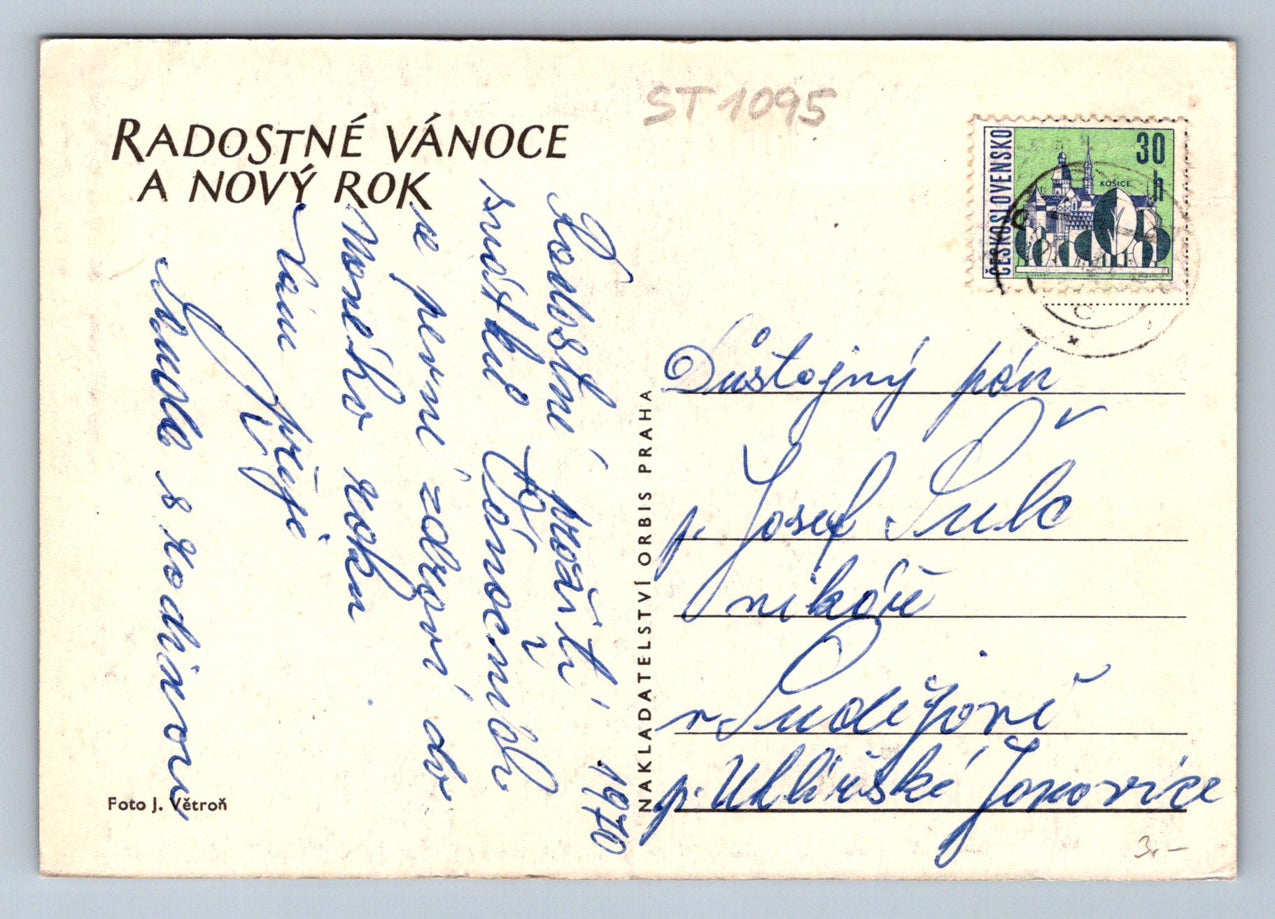 RADOSTNÉ VÁNOCE
A NOVÝ ROK
ST 1095
ČESKOSLOVENSKO
30
h
KOŠICE
Radostné prožití
svátků Vánočních
a pevné zdraví do
nového roku
Vám přeje
s rodinou
1970
NAKLADATELSTVÍ ORBIS PRAHA
Důstojný pán
p. Josef Šulc
vikáře
v Sudějově
p. Uhlířské Janovice
Foto J. Větroň
3,-